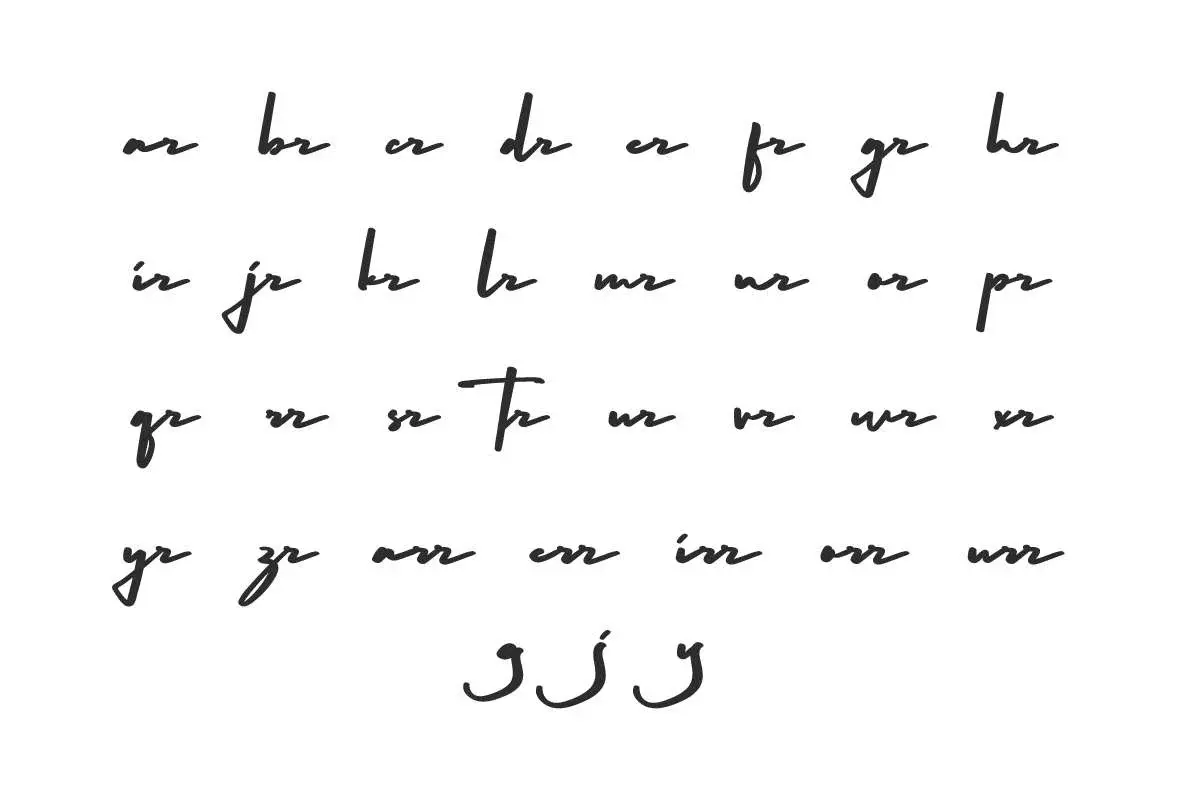 ar br cr dr er fr gr hr
ir jr kr lr mr nr or pr
qr rr sr tr ur vr wr xr
yr zr arr err irr orr urr
g j y